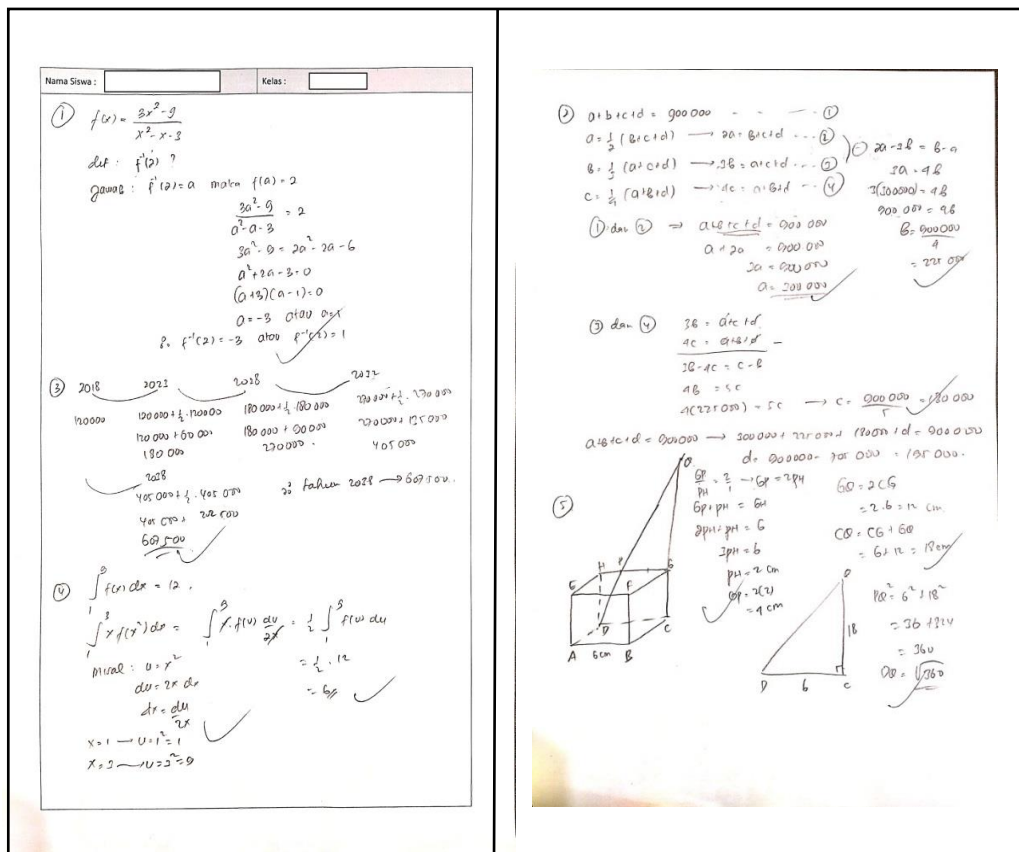 Nama Siswa :
Kelas :
① f(x) = 3x² - 9 / x² - x - 3
dit : f⁻¹(2) ?
Jawab : f⁻¹(2) = a maka f(a) = 2
3a² - 9 / a² - a - 3 = 2
3a² - 9 = 2a² - 2a - 6
a² + 2a - 3 = 0
(a+3)(a-1) = 0
a = -3 atau a = 1
∴ f⁻¹(2) = -3 atau f⁻¹(2) = 1
③ 2018 2023 2028
120000 120 000 + ½ . 120000 180 000 + ½ . 180 000 270 000 + ½ . 270 000
120 000 + 60 000 180 000 + 90 000 270000 + 135 000
180 000 270000 . 405 000
2038
405 000 + ½ . 405 000 ∴ tahun 2038 → 607 500.
405 000 + 202 500
607 500
④ ∫₁⁹ f(x) dx = 12 .
∫₁³ x f(x²) dx = ∫₁⁹ x . f(u) du/2x = ½ ∫₁⁹ f(u) du
misal : u = x² = ½ . 12
du = 2x dx = 6
dx = du/2x
x = 1 → u = 1² = 1
x = 3 → u = 3² = 9
② a+b+c+d = 900 000 - - - ①
a = ½ (b+c+d) → 2a = b+c+d - - - ②
b = ⅓ (a+c+d) → 3b = a+c+d - - - ③
c = ¼ (a+b+d) → 4c = a+b+d - - - ④
2a - 3b = b - a
3a = 4b
3(300000) = 4b
900 000 = 4b
b = 900000 / 4
= 225 000
① dan ② ⇒ a+b+c+d = 900 000
a + 2a = 900 000
3a = 900 000
a = 300 000
③ dan ④ 3b = a+c+d
4c = a+b+d -
3b - 4c = c - b
4b = 5c
4(225 000) = 5c → c = 900 000 / 5 = 180 000
a+b+c+d = 900000 → 300000 + 225 000 + 180000 + d = 900 000
d = 900000 - 705 000 = 195 000.
⑤
GP/PH = 2/1 → GP = 2PH
GP + PH = GH
2PH + PH = 6
3PH = 6
PH = 2 cm
GP = 2(2)
= 4 cm
GQ = 2CG
= 2.6 = 12 cm
CQ = CG + GQ
= 6 + 12 = 18 cm
Q
H P G
E F
D C
A 6cm B
Q
18
D 6 C
DQ² = 6² + 18²
= 36 + 324
= 360
DQ = √360